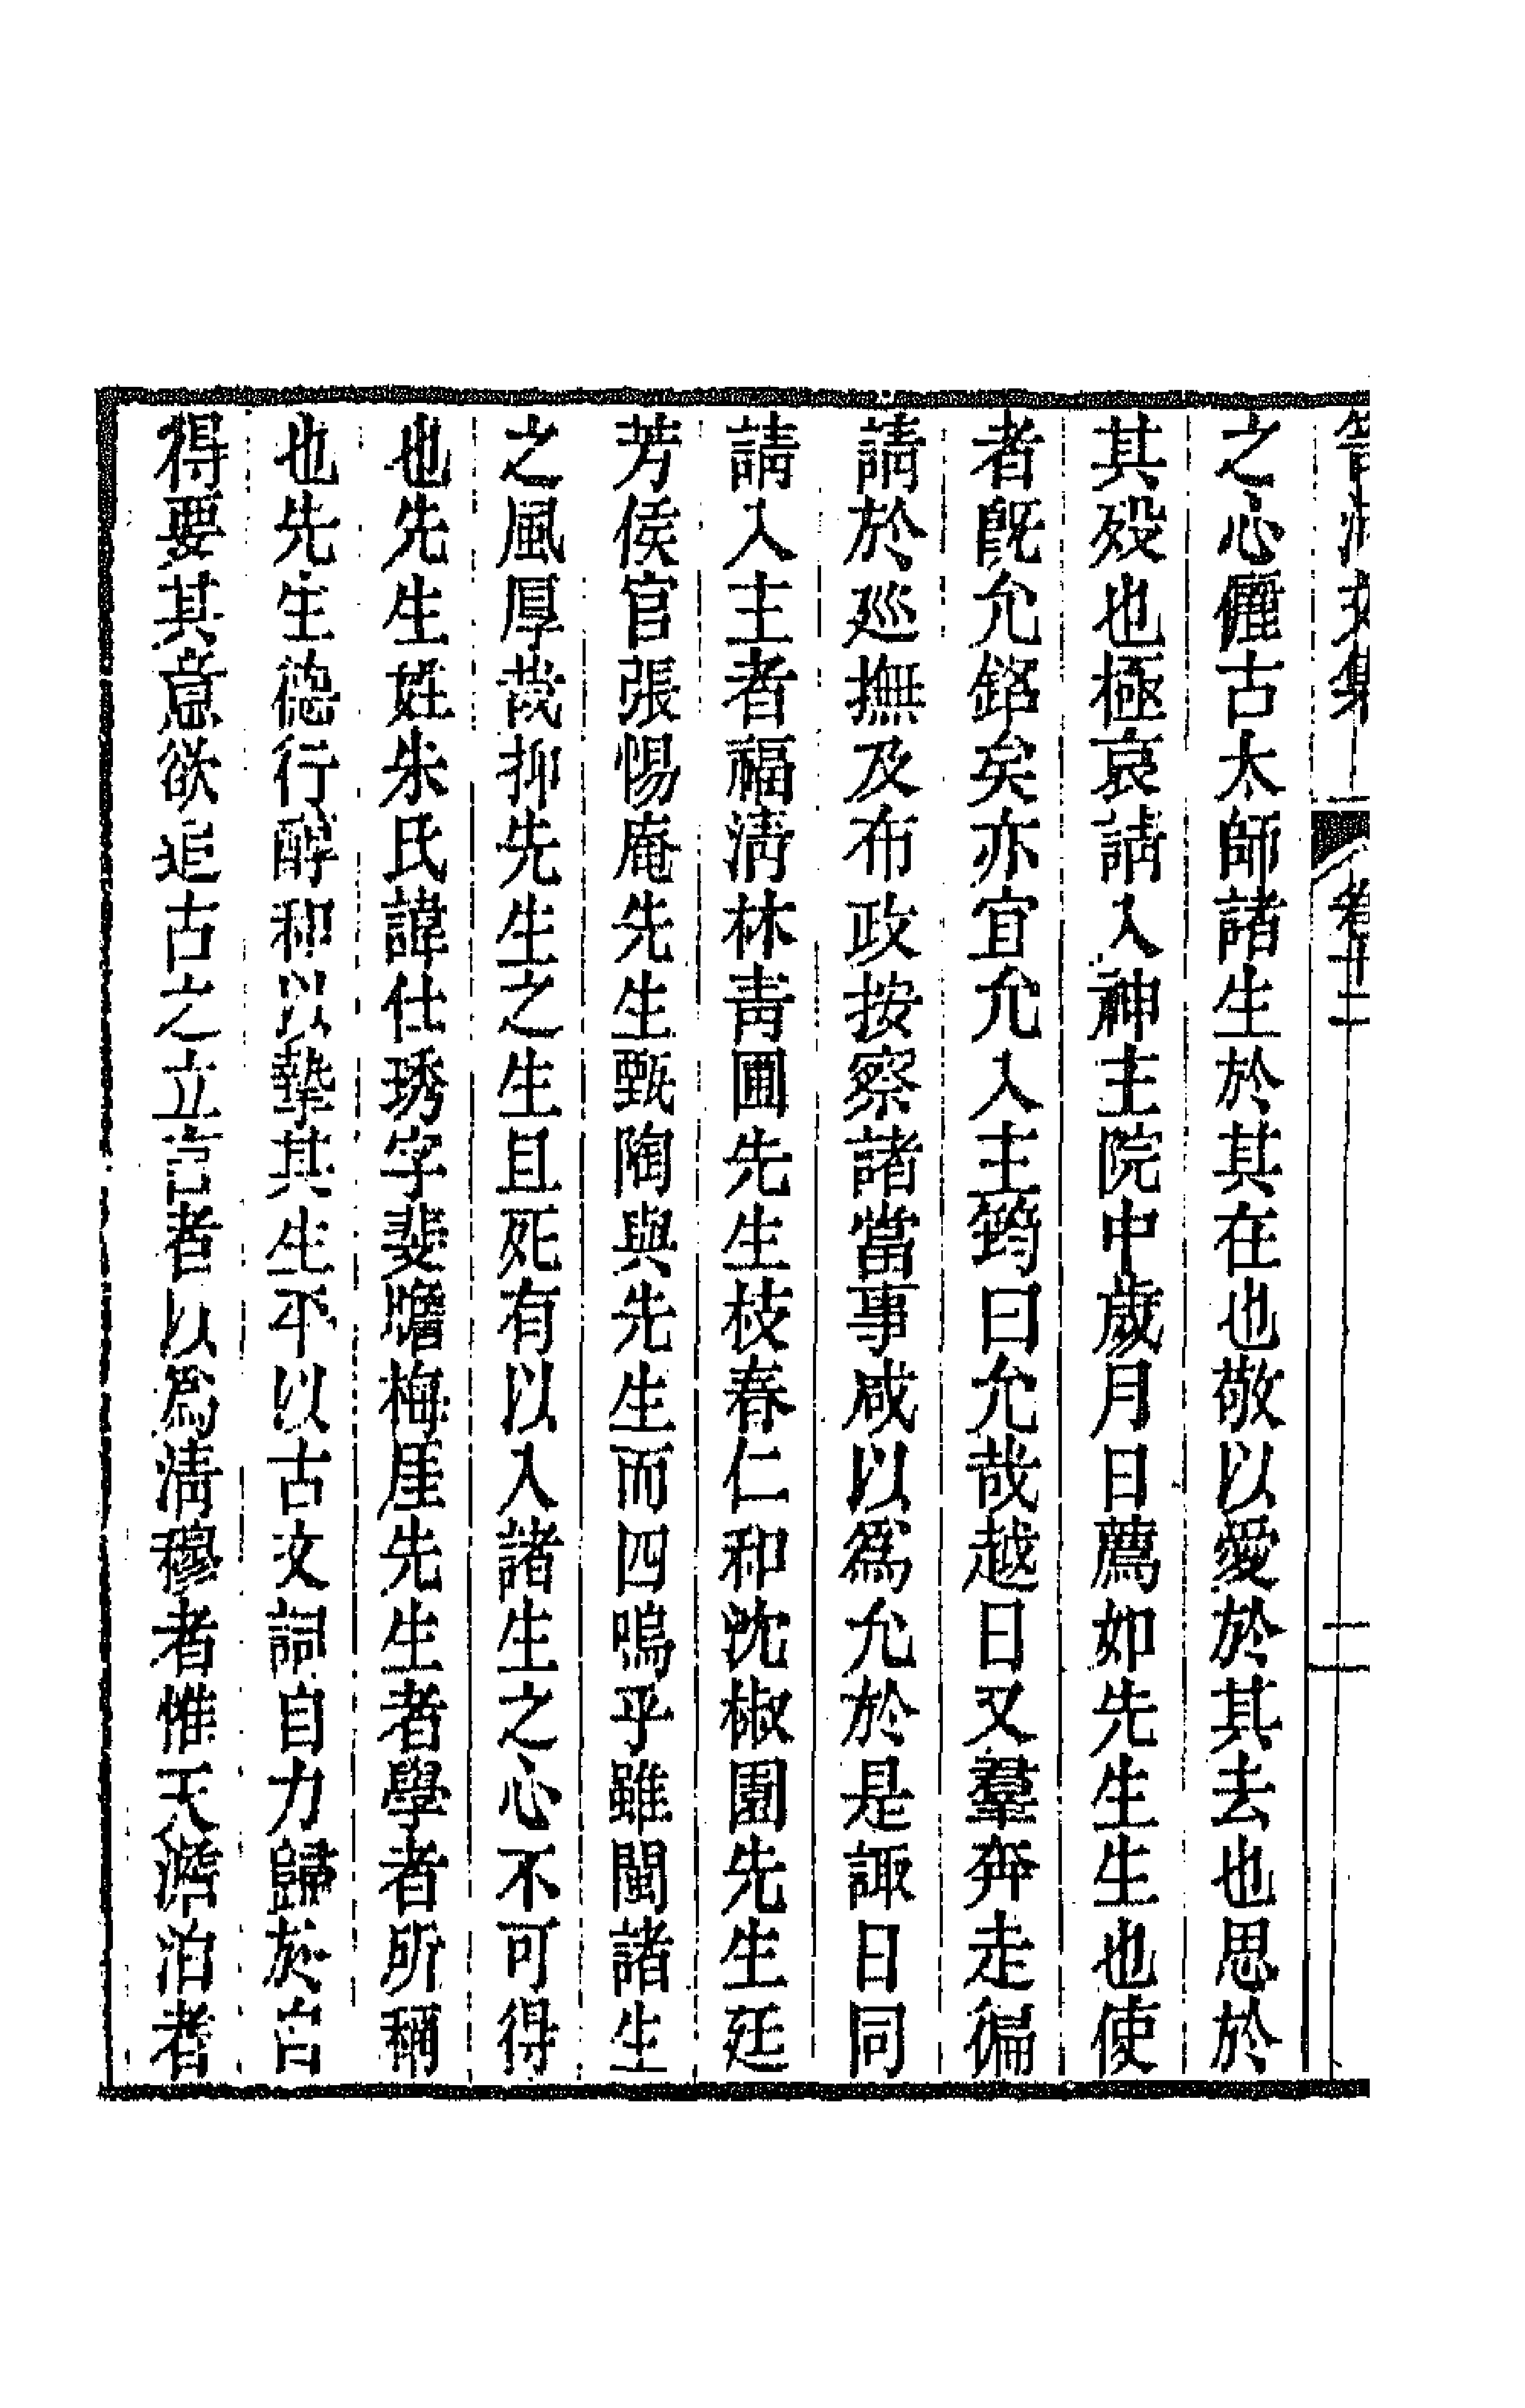 笥河文集 卷十二
之心儷古太師諸生於其在也敬以愛於其去也思於
其歿也極哀請入神主院中歲月日薦如先生生也使
者旣允銘矣亦宜允入主筠曰允哉越日又羣奔走徧
請於廵撫及布政按察諸當事咸以爲允於是諏日同
請入主者福淸林靑圃先生枝春仁和沈椒園先生廷
芳侯官張惕庵先生甄陶與先生而四嗚乎雖閩諸生
之風厚哉抑先生之生且死有以入諸生之心不可得
也先生姓朱氏諱仕琇字斐瞻梅厓先生者學者所稱
也先生德行醇和以摯其生平以古文詞自力歸於自
得要其意欲追古之立言者以爲淸穆者惟天澹泊者